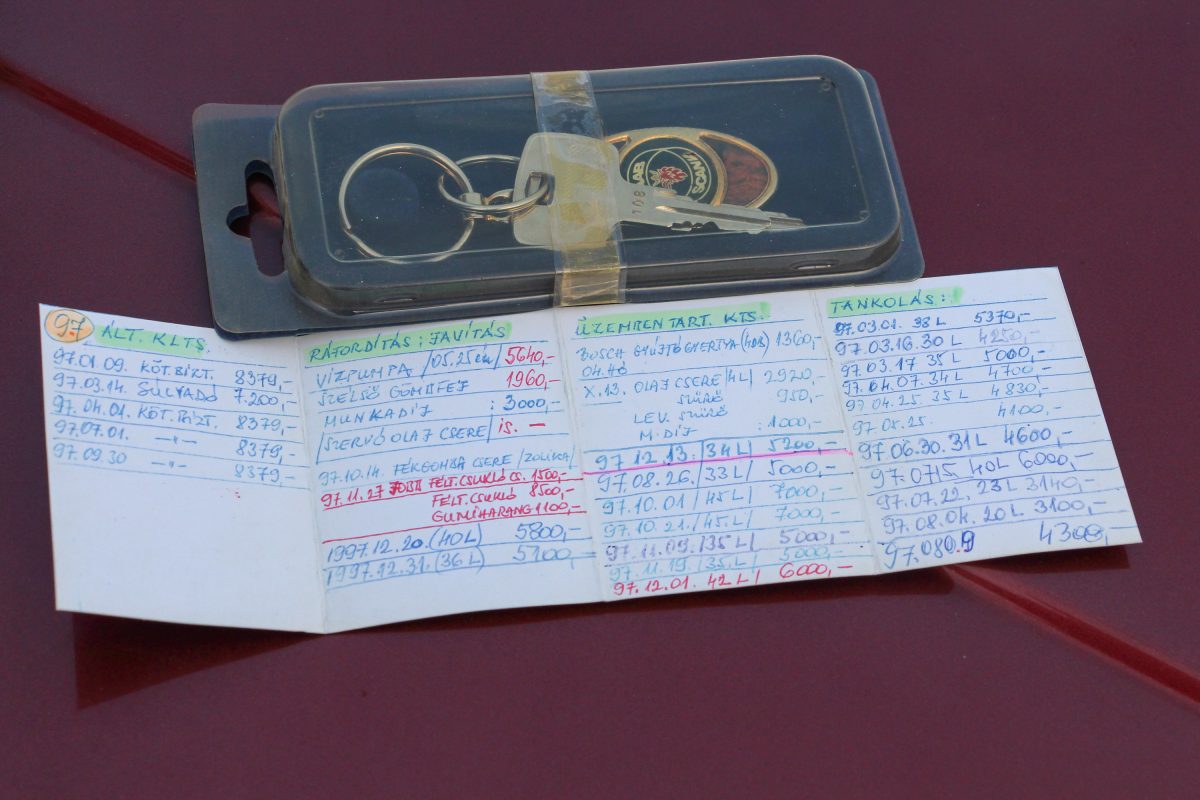 SAAB
SCANIA
108
97
ÁLT. KLTS.
97.01 09. KÖT. BIZT. 8379,-
97.03.14. SÚLYADÓ 7.200,-
97. 04.01. KÖT. BIZT. 8379,-
97.07.01. -"- 8379,-
97.09.30 -"- 8379,-
RÁFORDÍTÁS; JAVÍTÁS
VÍZPUMPA /05.25 5640,-
SZÉLSŐ GÖMBFEJ 1960,-
MUNKADÍJ : 3000,-
/SZERVÓ OLAJ CSERE/ is. -
97.10.14. FÉKGOMBA CSERE /ZOLIKA/
97.11.27 JOBB FÉLT. CSUKLÓ CS. 1500,-
FÉLT. CSUKLÓ 8500,-
GUMIHARANG 1100,-
1997.12.20. (40L) 5800,-
1997.12.31. (36L) 5100,-
ÜZEMBENTART. KTS.
BOSCH GYÚJTÓGYERTYA (4DB) 1360,-
X.13. OLAJ CSERE /4L/ 2920,-
SZŰRŐ 950,-
LEV. SZŰRŐ
M. DÍJ : 1000,-
97.12.13. /34L/ 5200,-
97.08.26. /33L/ 5000,-
97.10.01 /45L/ 7000,-
97.10.21. /45.L/ 7000,-
97.11.09. /35L/ 5000,-
97.11.19. /35.L/ 5000,-
97.12.01. 42L/ 6000,-
TANKOLÁS:
97.03.01. 38L 5379,-
97.03.16. 30 L 4250,-
97.03.17 35L 5000,-
97.04.07. 34L 4700,-
97.04.25. 35L 4830,-
97.06.25. 4100,-
97.06.30. 31L 4600,-
97.0715 40L 6000,-
97.07.22. 23L 3140,-
97.08.04. 20L 3100,-
97.080.9 4300,-